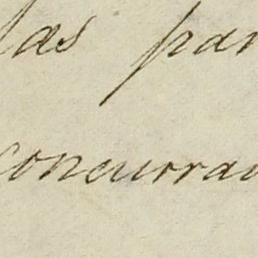 las par
concurrau